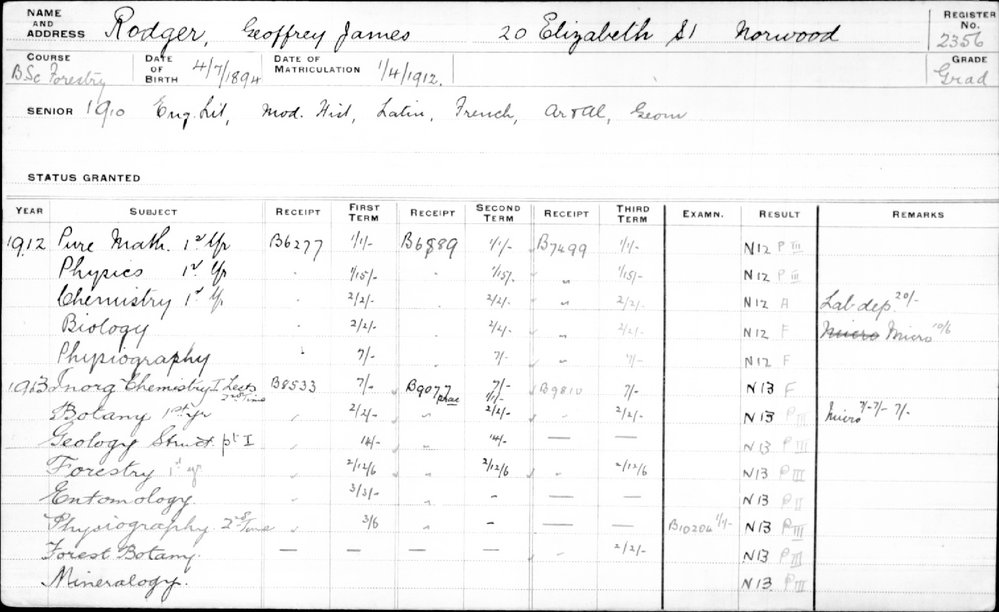 NAME AND ADDRESS Rodger, Geoffrey James 20 Elizabeth St Norwood REGISTER No. 2356
COURSE BSc Forestry DATE OF BIRTH 4/7/1894 DATE OF MATRICULATION 1/4/1912. GRADE Grad
SENIOR 1910 Eng. Lit, Mod. Hist, Latin, French, Ar & Al, Geom
STATUS GRANTED
YEAR SUBJECT RECEIPT FIRST TERM RECEIPT SECOND TERM RECEIPT THIRD TERM EXAMN. RESULT REMARKS
1912 Pure Math. 1st Yr B6277 1/1/- B6889 1/1/- B7499 1/1/- N12 P III
Physics 1st Yr " 1/15/- 1/15/- " 1/15/- N12 P III
Chemistry 1st Yr 2/2/- 2/2/- " 2/2/- N12 A Lab dep. 20/-
Biology 2/2/- 2/2/- " 2/2/- N12 F Micro Micro 10/6
Physiography 7/- 7/- " 7/- N12 F
1913 Inorg Chemistry I Lects 2nd time B8533 7/- B9077 prac 7/- 1/1/- B9810 7/- N13 F
Botany 1st yr 2/2/- " 2/2/- 2/2/- N13 P III Micro 7/- 7/- 7/-
Geology Struct. pt I 14/- " 14/- — — N13 P III
Forestry 1st yr 2/12/6 " 2/12/6 " 2/12/6 N13 P III
Entomology. 3/3/- " - — — N13 P II
Physiography 2nd time 3/6 " - — — B10204 1/1/- N13 P III
Forest Botany. — — — — " 2/2/- N13 P III
Mineralogy. N13 P III